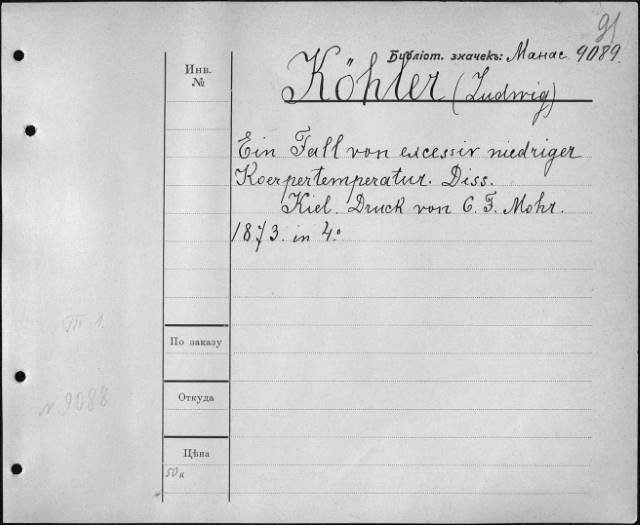 91
Библіот. значекъ: Манас 9089.
Инв.
№
Köhler (Ludwig)
Ein Fall von excessiv niedriger
Koerpertemperatur. Diss.
Kiel. Druck von C. F. Mohr.
1873. in 4°
III 1.
По заказу
N 9088
Откуда
Цѣна
50 а